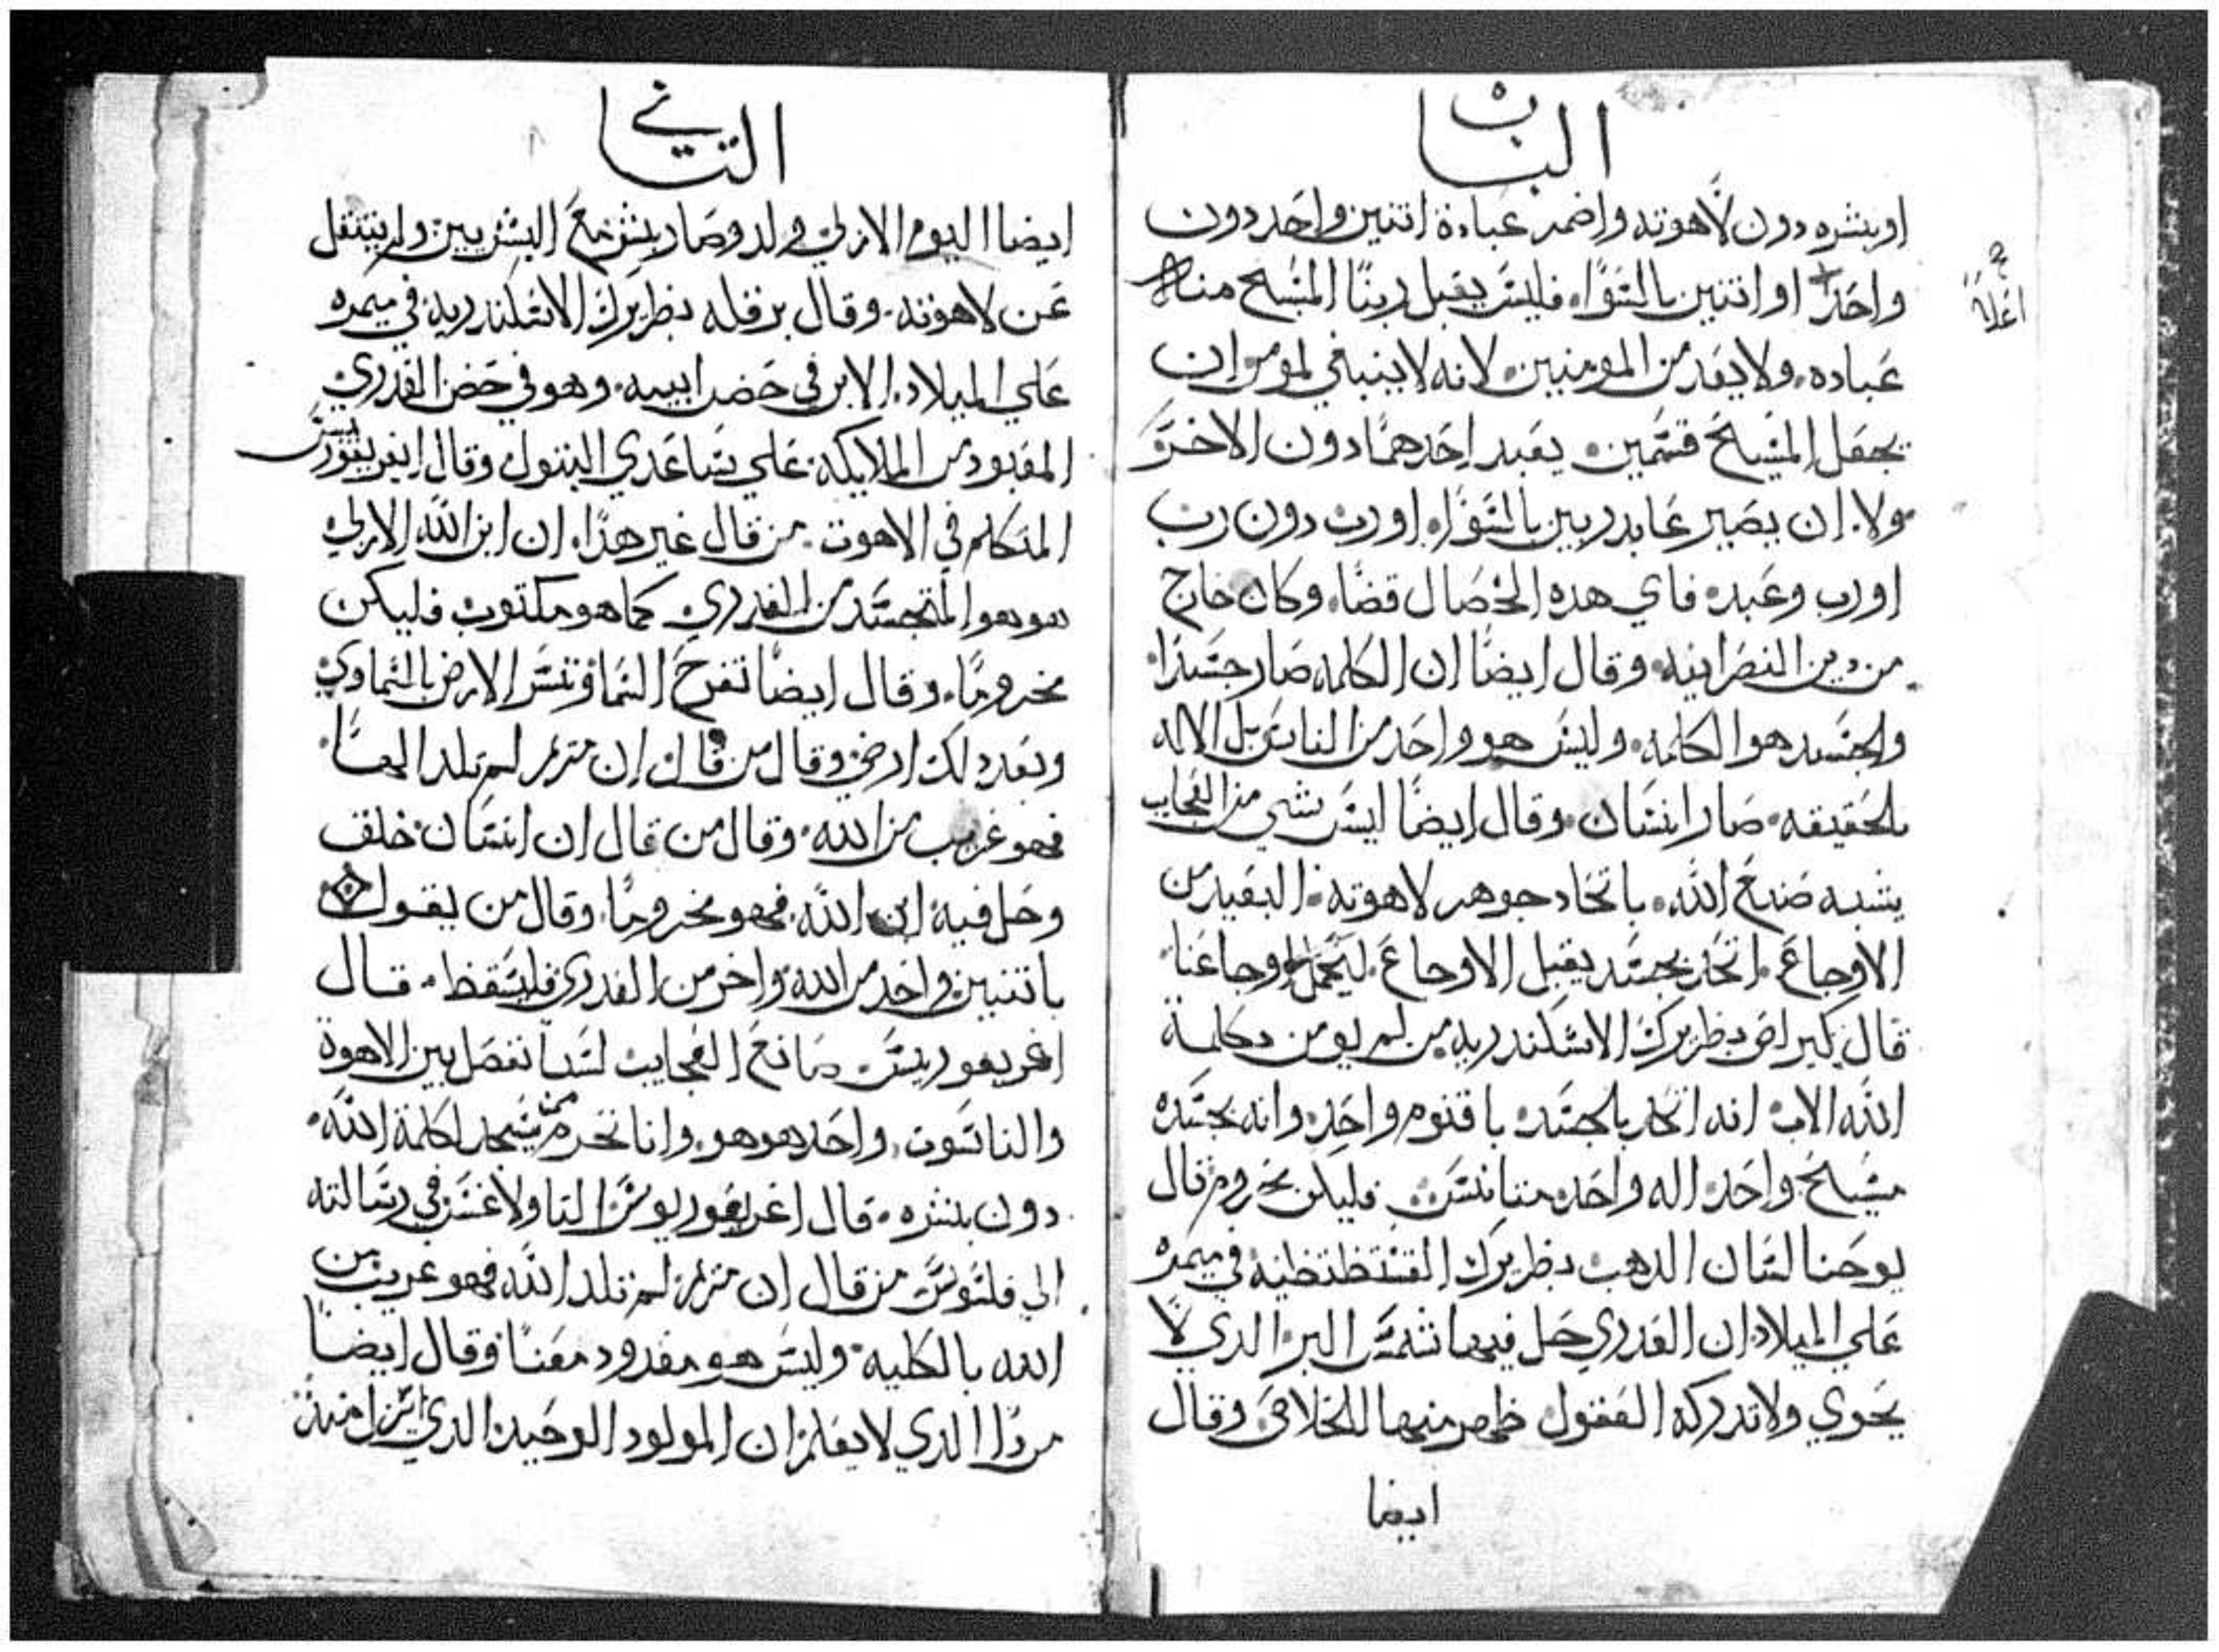 الباب
او بشره دون لاهوته واضمر عبادة اتنين واحد دون
واحدًا او اتنين بالسَوَّاء فليس يقبل ربنا المسَيح مناله
اعلاه
عَباده ولا يعَد من المومنين لانه لا ينبغي لمومن ان
يجعَل المسَيحَ قسَمين يعَبد احَدهما دون الاخر
ولا ان يصَير عَابد ربين بالسَوَّاء او رب دون رب
او رب وعَبد فاي هده الخصَال قضَاء وكان خارج
من دين النصَرانيه وقال ايضًا ان الكلمه صَار جسَدًا
والجسَد هوا الكلمه وليسَ هو واحَد من الناسَ بل الاله
بالحَقيقه صَار انسَان وقال ايضًا ايسَ شي من العَجايب
يشبه صَنعَ الله باتحَاد جوهر لاهوته البعَيد من
الاوجاعَ اتحَد بجسَد يقبل الاوجاعَ ليَحَمل اوجاعَنا
قال كيرلص بطريرك الاسَكندريه من لم يومن بكلمة
الله الاب انه اتحَد بالجسَد باقنوم واحَد وانه بجسَده
مسَيحَ واحَد اله واحَد متانسَ فليكن محَروم قال
يوحَنا لسَان الدهب بطريرك القسَطنطنيه في ميمره
عَلي الميلاد ان العَدري حَل فيها شمسَ البر الدي لا
يحَوي ولا تدركه العَقول ظهر منها للخلاصَ وقال
ايضا
التاني
ايضا اليوم الازلي ولد وصَار بشر معَ البشريين ولم ينتقل
عَن لاهوته وقال برقله بطريرك الاسَكندريه في ميمره
عَلي الميلاد الابن في حَضن ابيه وهو في حَضن العَدري
المعَبود من الملايكه عَلي سَاعَدي البتول وقال اغريغوريسَ
المتكلم في الاهوت من قال غير هدا ان ابن الله الازلي
هو هو المتجسَد من العَدري كما هو مكتوب فليكن
محَرومًا وقال ايضًا تفرحَ السَما وتسَر الارض بالسَماوي
وبعَد دلك ارضي وقال من قال ان مريم لم تلد الهًا
فهو غريب من الله وقال من قال ان انسَان خلق
وحَل فيه ابن الله فهو محَرومًا وقال من يقول
باتنين واحَد من الله واخر من العَدري فليسَقط قال
اغريغوريسَ صَانعَ العَجايب لسَنا نفصَل بين الاهوة
والناسَوت واحَد هو هو وانا نحَرم من يسَجد لكلمة الله
دون بشره قال اغريغوريوسَ التاولاغسَ في رسَالته
الي فلسَوسَ من قال ان مريم لم تلد الله فهو غريب من
الله بالكليه وليسَ هو معَدود معَنا وقال ايضًا
مردا الدي لا يعَلم ان المولود الوحَيد الدي